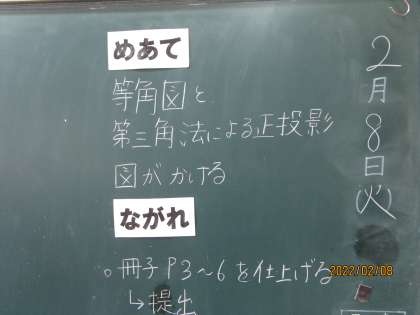 2月8日(火)
めあて
等角図と
第三角法による正投影
図がかける
ながれ
。冊子P3~6を仕上げる
↳提出
2022/02/08